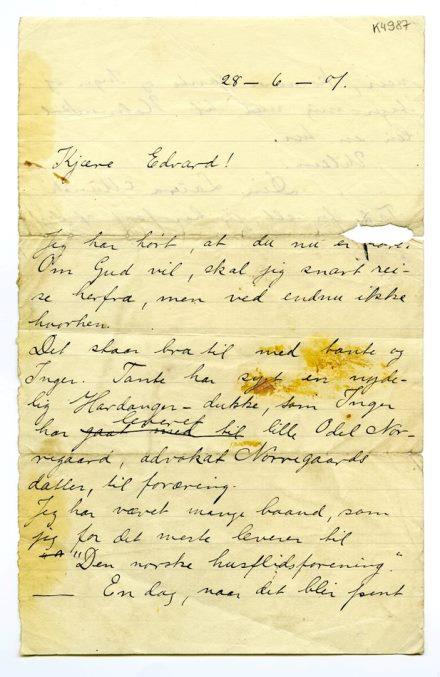 K4987
28 – 6 – 01.
Kjære Edvard!
Jeg har hørt, at du nu er
Om Gud vil, skal jeg snart rei-
se herfra, men ved endnu ikke
hvorhen.
Det staar bra til med tante og
Inger. Tante har sygt en nyde-
lig Hardanger-dukke, som Inger
leveret
har gaat med til lille Odel Nor-
regaard, advokat Norregaards
datter, til foræring.
Jeg har vævet mange baand, som
jeg for det meste leverer til
"Den norske husflidsforening."
— En dag, naar det blir pent